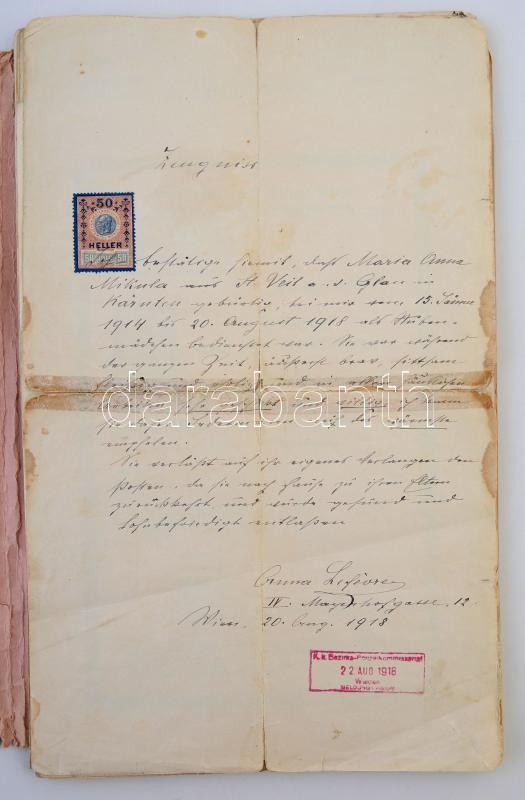 Zeugniss
50
HELLER
50 50
bestätige hiemit, daß Maria Anna
Mikula aus St. Veit a. d. Glan in
Kärnten gebürtig, bei mir vom 15. Jänner
1914 bis 20. August 1918 als Stuben-
mädchen bedienstet war. Sie war während
der ganzen Zeit, äußerst brav, sittsam
und in allen häuslichen
und ich
auf das
empfehlen.
Sie verläßt auf ihr eigenes Verlangen den
Posten, da sie nach Hause zu ihren Eltern
zurückkehrt und wurde gesund und
lohnbefriedigt entlaßen
darabanth
Anna
IV. Mayerhofgasse 12.
Wien, 20. Aug. 1918
K. k. Bezirks-Polizeikommissariat
22 AUG 1918
Wieden